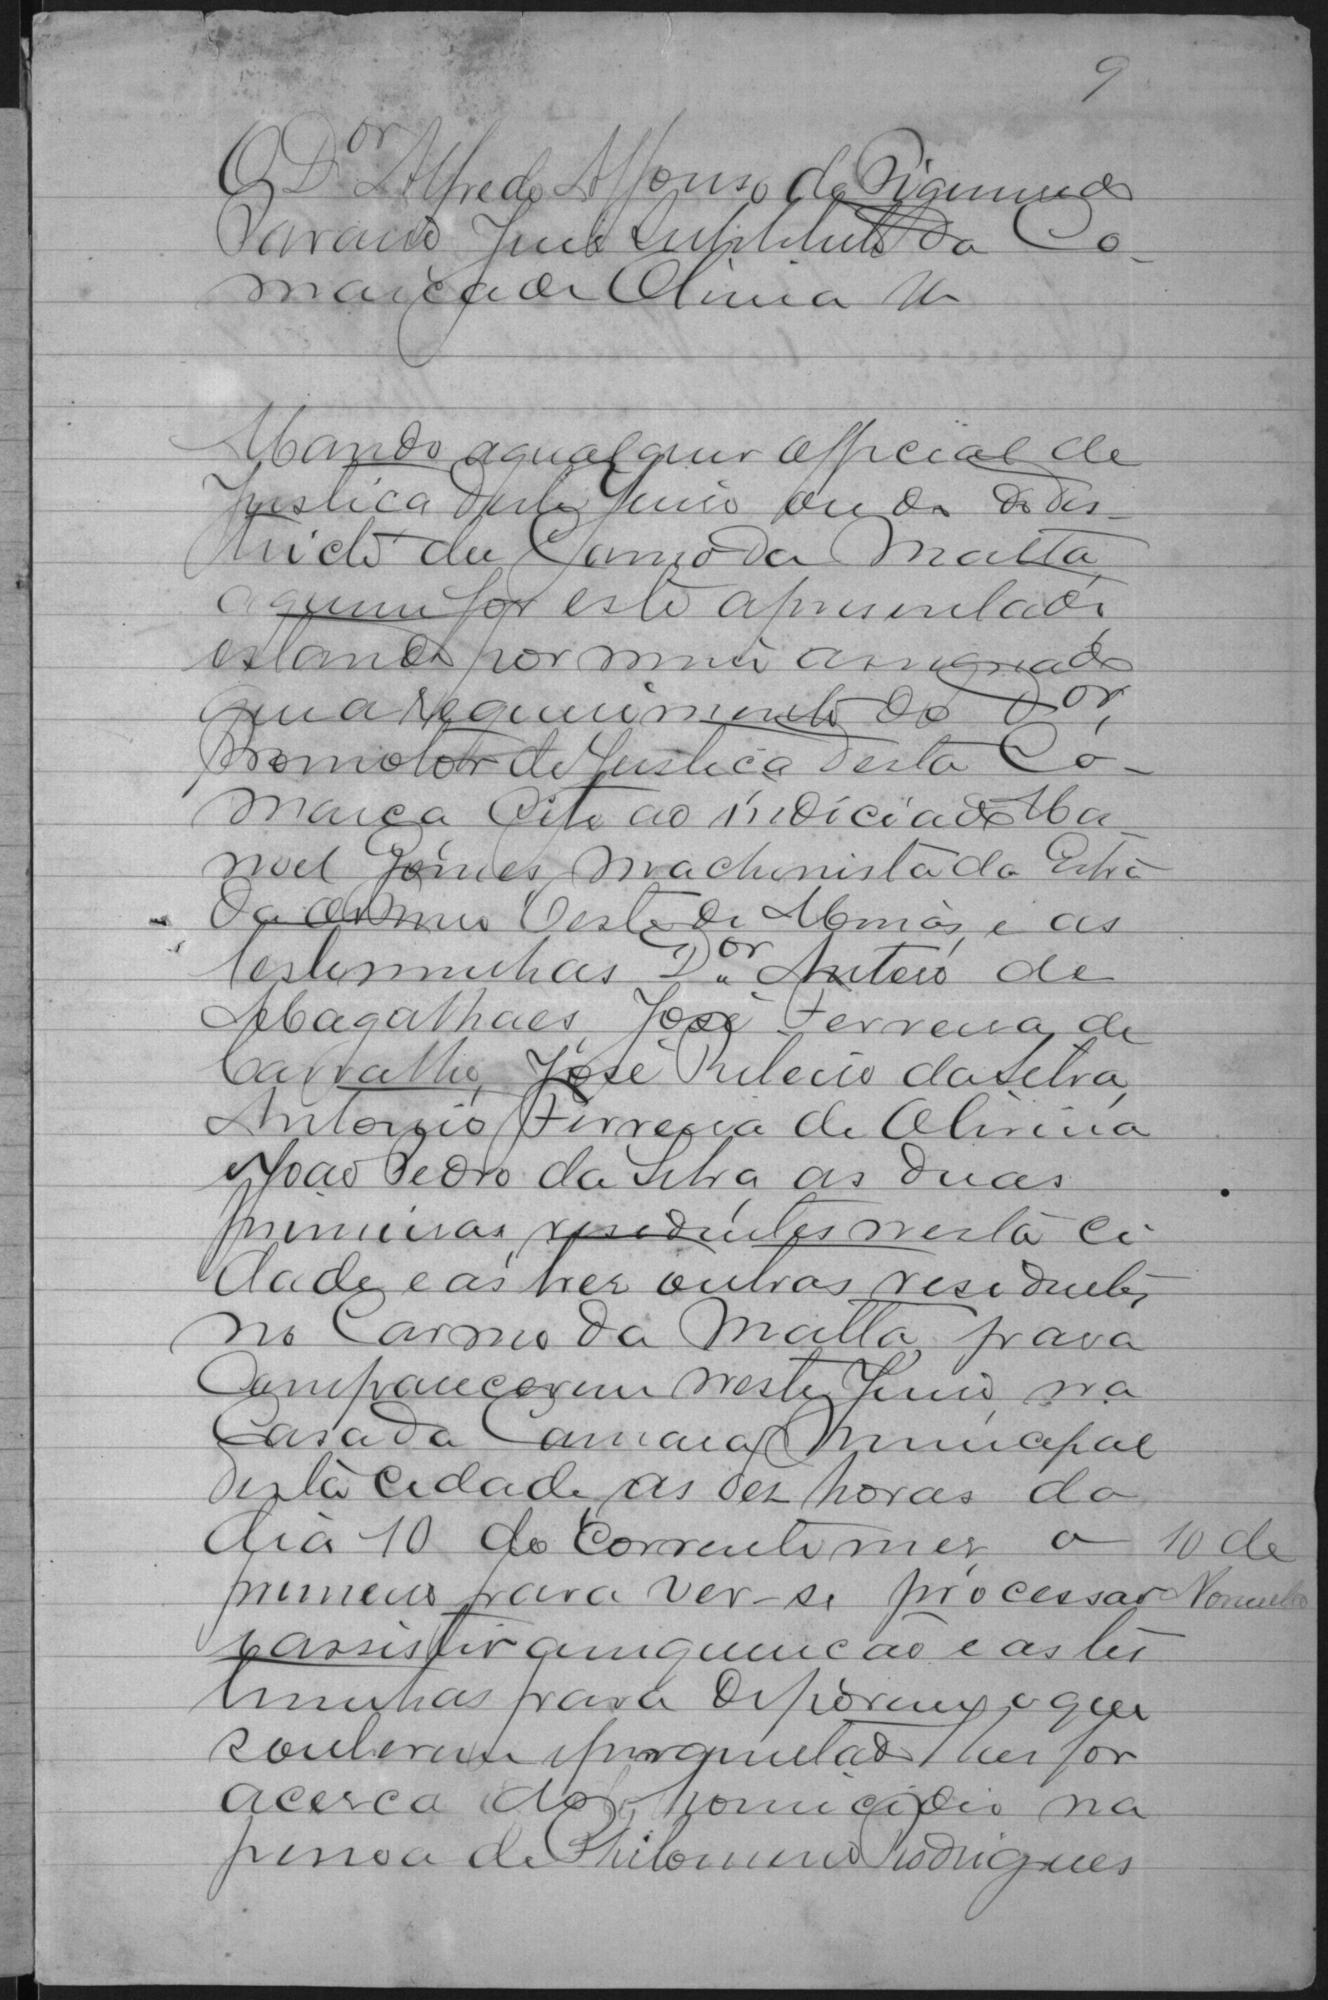 9
O Dor Alfredo Affonso de Figueiredo
Paraiso Juis Substituto da Co-
marca de Oliveira &
Mando a qualquer official de
Justica deste Juiso ou do do dis-
tricto du Carmo da Matta,
a quem for este apresentado
estando por mim assignado
que a requerimento do Dor,
Promotor de Justica desta Co-
marca Cite ao indiciado Ma
noel Gomes, machinista da Estra
da Oeste de Minas, e as
testemunhas Dor Antero de
Magalhaes, José Ferreira de
Carvalho, José Ribeiro da Silva,
Antonio Ferreira de Oliveira
e João Pedro da Silva, as duas
primeiras, residentes nesta ci
dade, e as tres outras residentes,
no Carmo da Matta, para
Comparecerem neste Juiso, na
Casa da Camara Municipal
desta cidade, as des horas do
dia 10 do corrente mes, o
10 de
Novembro
primeiro para ver-se processar
e assistir a inquiricão e as tes
timunhas para deporem o que
souberem e perguntado lhes for
acerca do homicidio na
pessoa de Philomeno Rodrigues